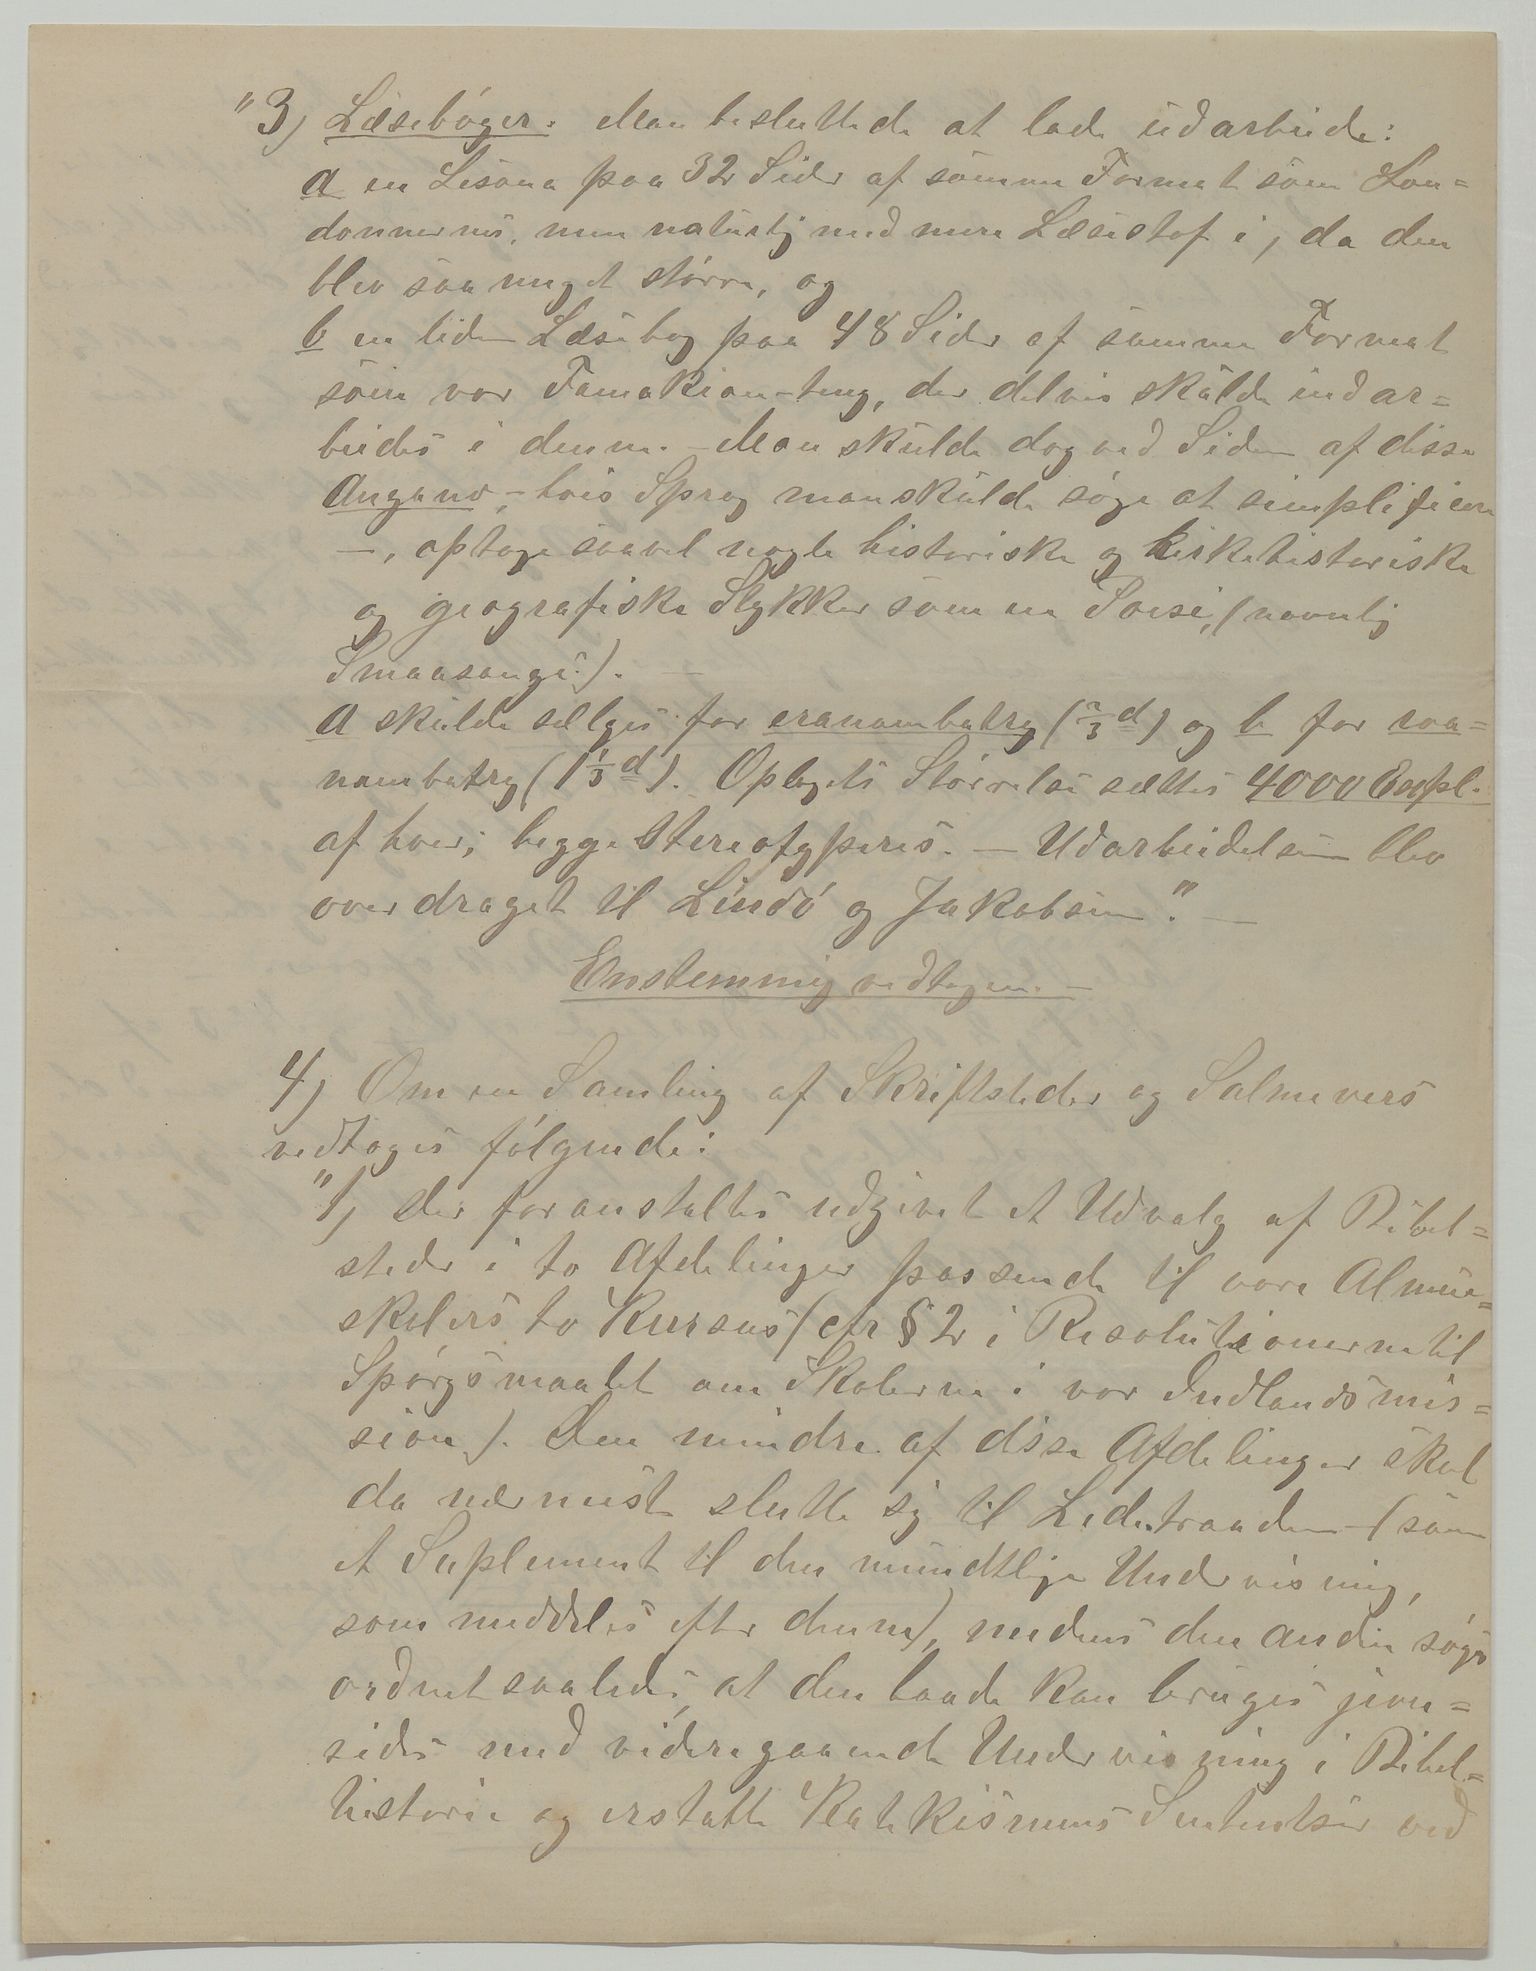 "3) Læsebøger. Man besluttede at lade udarbeide:
a en Lesona paa 32 Sider af samme Format som Lon=
donnernes, men naturlig med mere Læsestof i, da den
blev saa meget større, og
b en liden Læsebog paa 48 Sider af samme Format
som vor Famakian-teny, der delvis skulde indar=
beides i denne. – Man skulde dog ved Siden af disse
Angano, – hvis Sprog man skulde søge at simplificere
–, optage saavel nogle historiske og kirkehistoriske
og geografiske Stykker som en Poesi, (navnlig
Smaasange). –
a skulde sælges for eranambatry (2/3 d) og b for roa=
nambatry (1 1/3 d). Oplagets Størrelse sættes 4000 Expl.
af hver; begge stereotyperes. – Udarbeidelsen blev
overdraget til Lindø og Jakobsen." –
Enstemmig vedtagen. –
4) Om en Samling af Skriftsteder og Salmevers
vedtoges følgende:
"1, Der foranstaltes udgivet et Udvalg af Bibel=
steder i to Afdelinger passende til vore Almue=
skolers to Kursus (cfr § 2 i Resolutionerne til
Spørgsmaalet om Skolerne i vor Indlandsmis=
sion). Den mindre af disse Afdelinger skal
da nærmest slutte sig til Ledetraaden – (som
et Suplement til den mundtlige Undervisning,
som meddeles efter denne), medens den anden søges
ordnet saaledes, at den baade kan bruges jevn=
sides med videregaaende Undervisning i Bibel=
historie og erstatte Katekismens Sententser ved